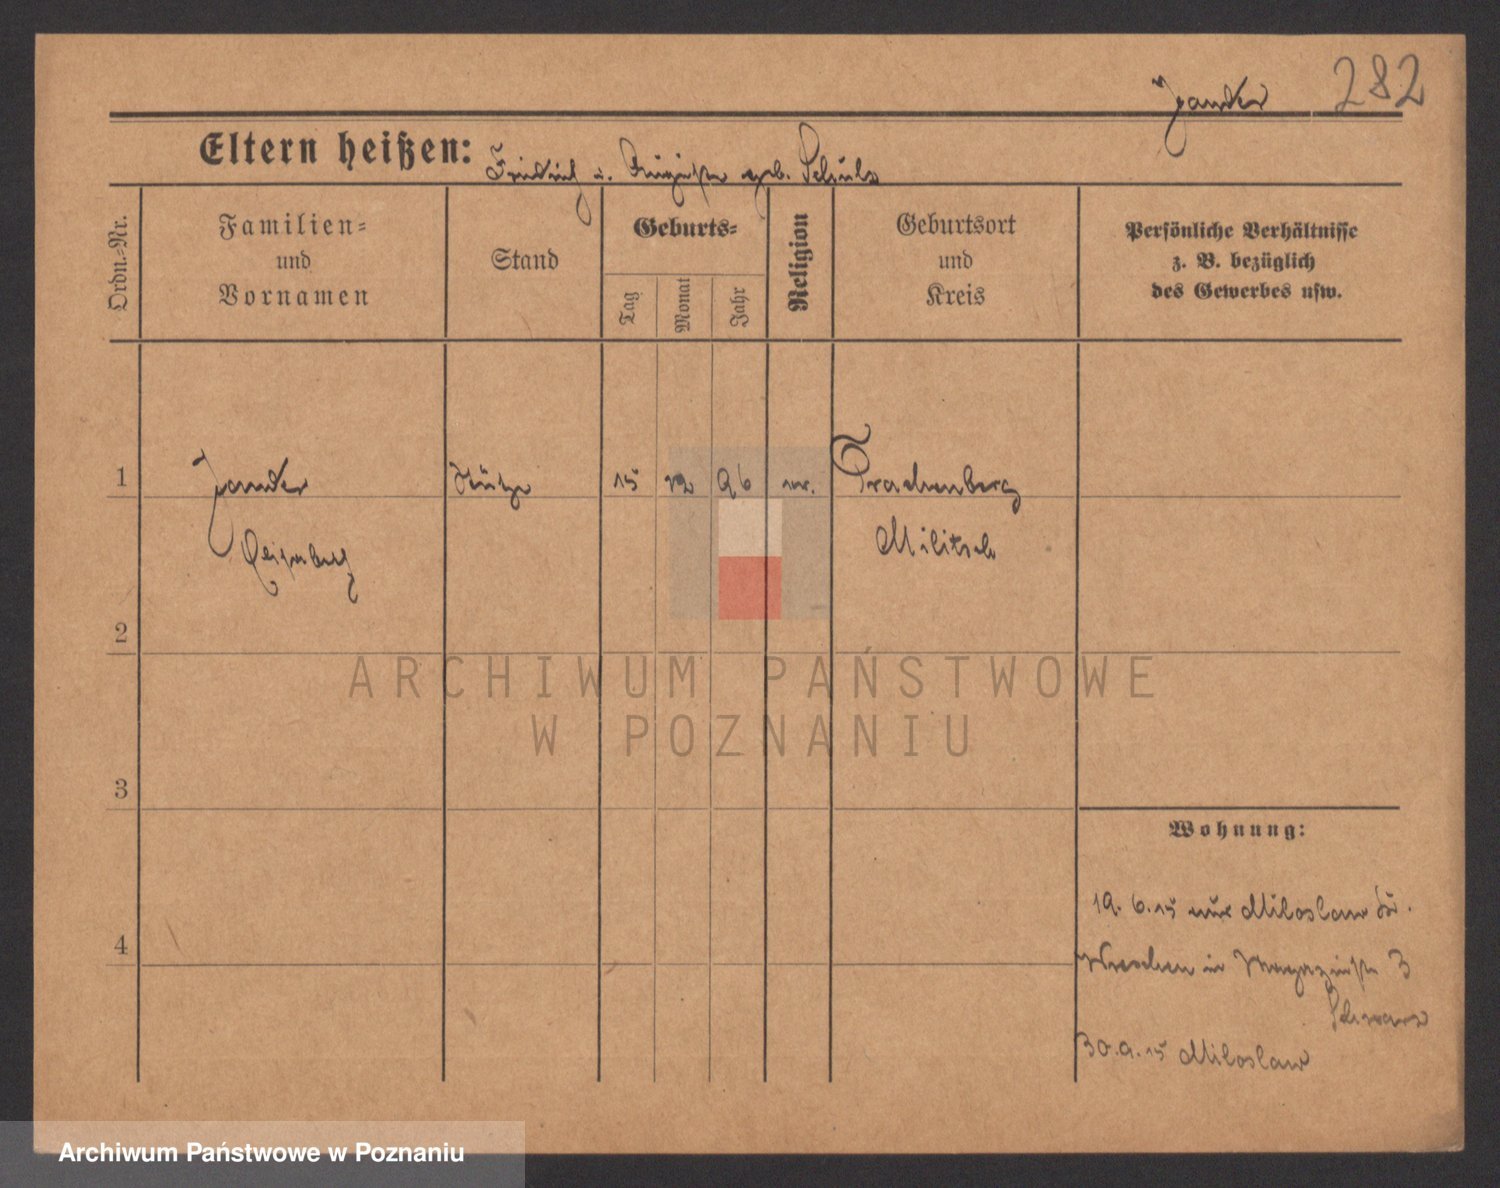 282
Jander
Eltern heißen: Friedrich u. Auguste geb. Schulz
Ordn.-Nr.
Familien-
und
Vornamen
Stand
Geburts-
Tag
Monat
Jahr
Religion
Geburtsort
und
Kreis
Persönliche Verhältnisse
z. B. bezüglich
des Gewerbes usw.
1 Jander Stütze 15 12 96 ev. Trachenberg
Elisabeth Militsch
2
3
4
Wohnung:
19. 6. 15 aus Miloslaw Kr.
Wreschen in Magazinstr 3
Schwarz
30. 9. 15 Miloslaw
ARCHIWUM PAŃSTWOWE
W POZNANIU
Archiwum Państwowe w Poznaniu